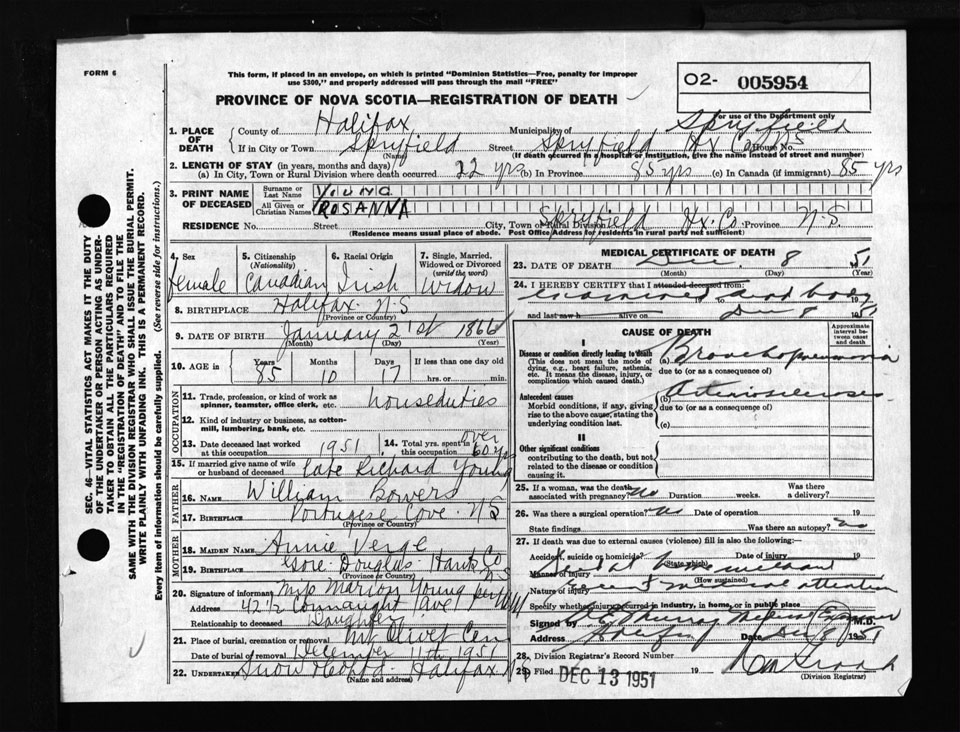 FORM 6
This form, if placed in an envelope, on which is printed "Dominion Statistics—Free, penalty for improper
use $300," and properly addressed will pass through the mail "FREE"
O2- 005954
For use of the Department only
PROVINCE OF NOVA SCOTIA—REGISTRATION OF DEATH
1. PLACE OF DEATH
County of Halifax Municipality of Spryfield
If in City or Town Spryfield Street Spryfield Hx Co NS House No.
(Name) (If death occurred in a hospital or institution, give the name instead of street and number)
2. LENGTH OF STAY (in years, months and days)
(a) In City, Town or Rural Division where death occurred 22 yrs (b) In Province 85 yrs (c) In Canada (if immigrant) 85 yrs
3. PRINT NAME OF DECEASED
Surname or Last Name YOUNG
All Given or Christian Names ROSANNA
RESIDENCE No. Street City, Town or Rural Division Spryfield Hx. Co. Province N-S.
(Residence means usual place of abode. Post Office Address for residents in rural parts not sufficient)
4. Sex female
5. Citizenship (Nationality) Canadian
6. Racial Origin Irish
7. Single, Married, Widowed or Divorced (write the word) Widow
8. BIRTHPLACE Halifax. N-S
(Province or Country)
9. DATE OF BIRTH January 21st 1866
(Month) (Day) (Year)
10. AGE in Years 85 Months 10 Days 17 If less than one day old hrs. or min.
OCCUPATION
11. Trade, profession, or kind of work as spinner, teamster, office clerk, etc. houseduties
12. Kind of industry or business, as cotton-mill, lumbering, bank, etc.
13. Date deceased last worked at this occupation 1951
14. Total yrs. spent in this occupation over 60 yrs
15. If married give name of wife or husband of deceased Late Richard Young
FATHER
16. NAME William Bowers
17. BIRTHPLACE Portugese Cove. N-S
(Province or Country)
MOTHER
18. MAIDEN NAME Annie Verge
19. BIRTHPLACE Gore Douglas Hants Co NS
(Province or Country)
20. Signature of informant Mrs Marion Young
Address 42 1/2 Connaught Ave
Relationship to deceased Daughter
21. Place of burial, cremation or removal Mt Olivet Cem
Date of burial or removal December 11th 1951
22. UNDERTAKER Snow & Co Ltd. Halifax NS
(Name and address)
MEDICAL CERTIFICATE OF DEATH
23. DATE OF DEATH Dec. 8 51
(Month) (Day) (Year)
24. I HEREBY CERTIFY that I attended deceased from:
examined dead body
to 19
and last saw h alive on Dec 8 1951
CAUSE OF DEATH
Approximate interval between onset and death
I
Disease or condition directly leading to death
(This does not mean the mode of dying, e.g., heart failure, asthenia, etc. It means the disease, injury, or complication which caused death.)
(a) Bronchopneumonia
due to (or as a consequence of)
Antecedent causes
Morbid conditions, if any, giving rise to the above cause, stating the underlying condition last.
(b) Arteriosclerosis
due to (or as a consequence of)
(c)
II
Other significant conditions
contributing to the death, but not related to the disease or condition causing it
25. If a woman, was the death associated with pregnancy? no Duration weeks. Was there a delivery?
26. Was there a surgical operation? no Date of operation 19
State findings Was there an autopsy? no
27. If death was due to external causes (violence) fill in also the following:
Accident, suicide or homicide? Date of injury 19
(State which)
Manner of injury
(How sustained)
Nature of injury medical attention
Specify whether injury occurred in industry, in home, or in public place
Signed by Murray Medical Examiner M.D.
Address Halifax Date Dec 8 1951
28. Division Registrar's Record Number
29. Filed DEC 13 1951 19
(Division Registrar)
SEC. 46—VITAL STATISTICS ACT MAKES IT THE DUTY
OF THE UNDERTAKER OR PERSON ACTING AS UNDER-
TAKER TO OBTAIN ALL THE PARTICULARS REQUIRED
IN THE "REGISTRATION OF DEATH" AND TO FILE THE
SAME WITH THE DIVISION REGISTRAR WHO SHALL ISSUE THE BURIAL PERMIT.
WRITE PLAINLY WITH UNFADING INK. THIS IS A PERMANENT RECORD.
Every item of information should be carefully supplied. (See reverse side for instructions.)